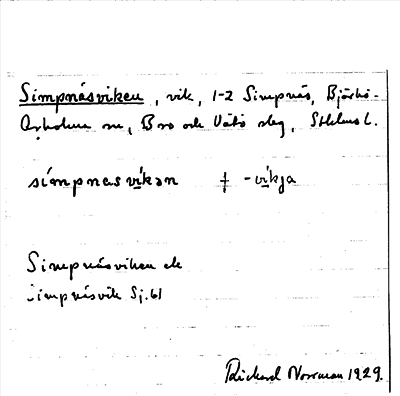 Simpnäsviken, vik, 1-2 Simpnäs, Björkö-
Arholma sn, Bro och Vätö slg, Sthlms l.
simpnasvikən ɟ -vikja
Simpnäsviken ek
Simpnäsvik Sj.61
Rickard Norrman 1929.